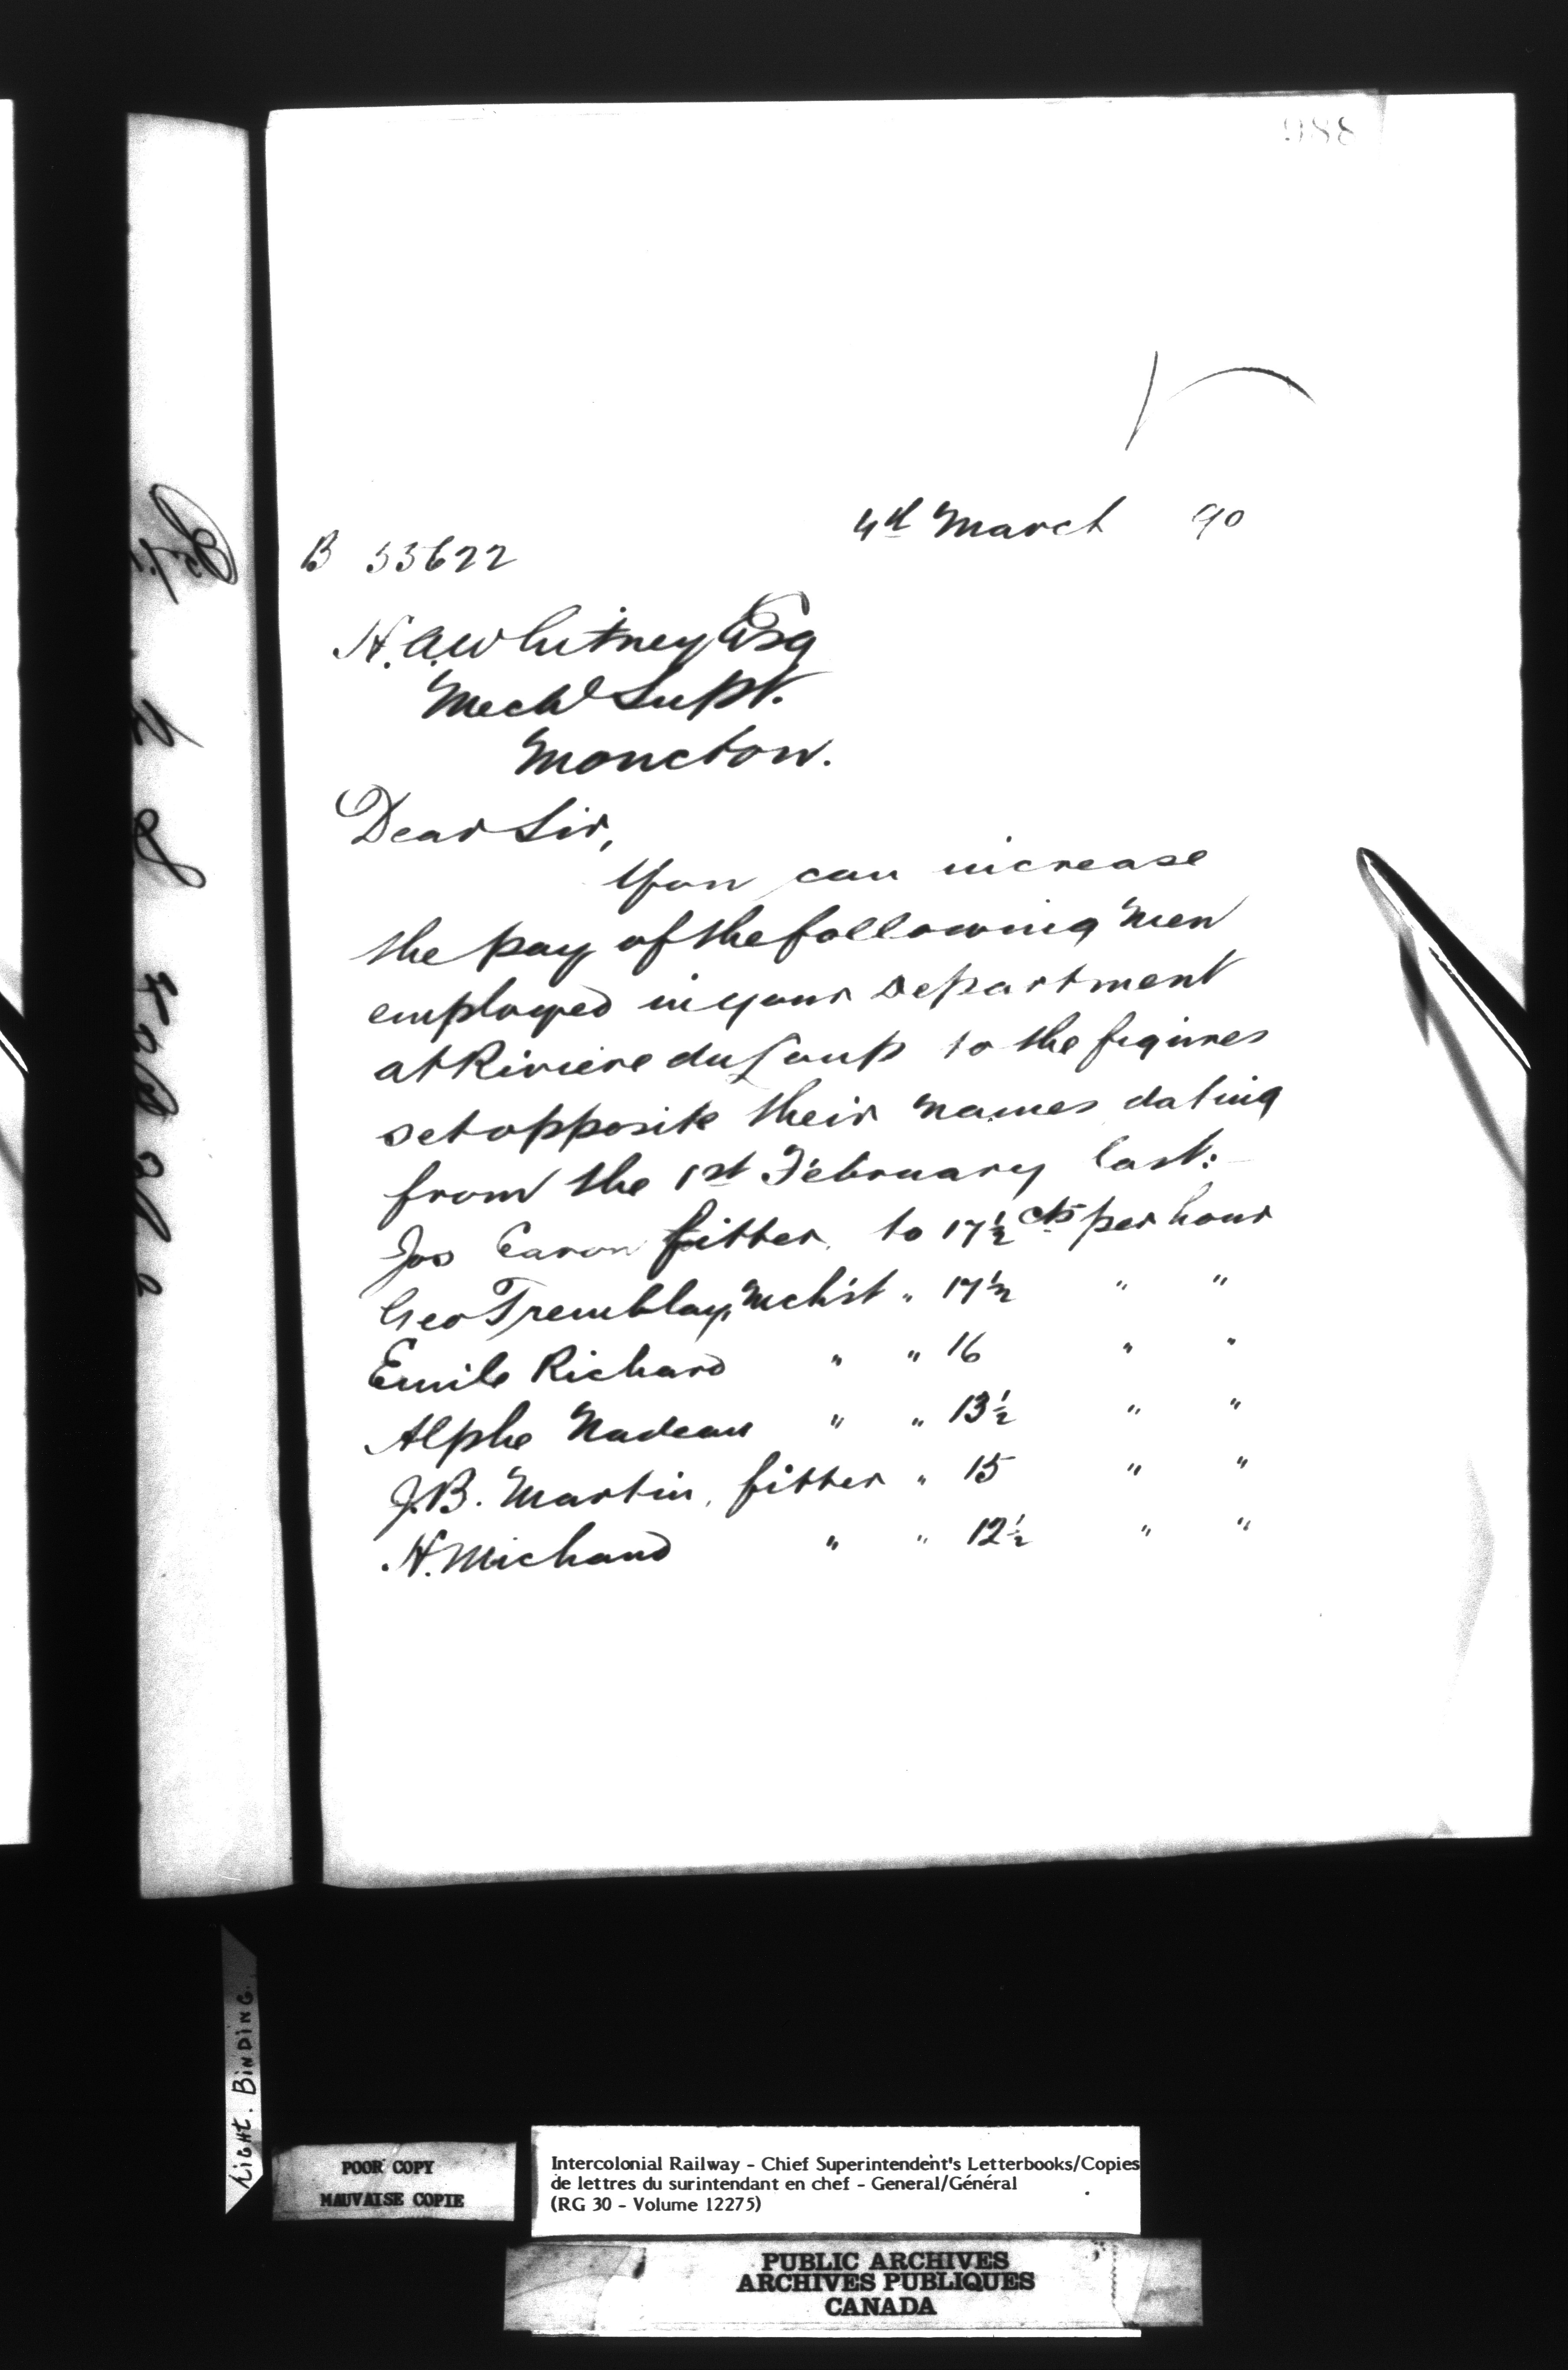 988
4d March 90
B 53622
H. A. Whitney Esq
Mechl Supt.
Moncton.
Dear Sir,
You can increase
the pay of the following men
employed in your Department
at Riviere du Loup to the figures
set opposite their names dating
from the 1st February last:
Jos Caron fitter to 17½ cts per hour
Geo Tremblay, Mchst " 17½ " "
Emile Richard " " 16 " "
Alphe Nadeau " " 13½ " "
J.B. Martin, fitter " 15 " "
H. Michaud " " 12½ " "
TIGHT. BINDING.
POOR COPY
MAUVAISE COPIE
Intercolonial Railway - Chief Superintendent's Letterbooks/Copies
de lettres du surintendant en chef - General/Général
(RG 30 - Volume 12275)
PUBLIC ARCHIVES
ARCHIVES PUBLIQUES
CANADA